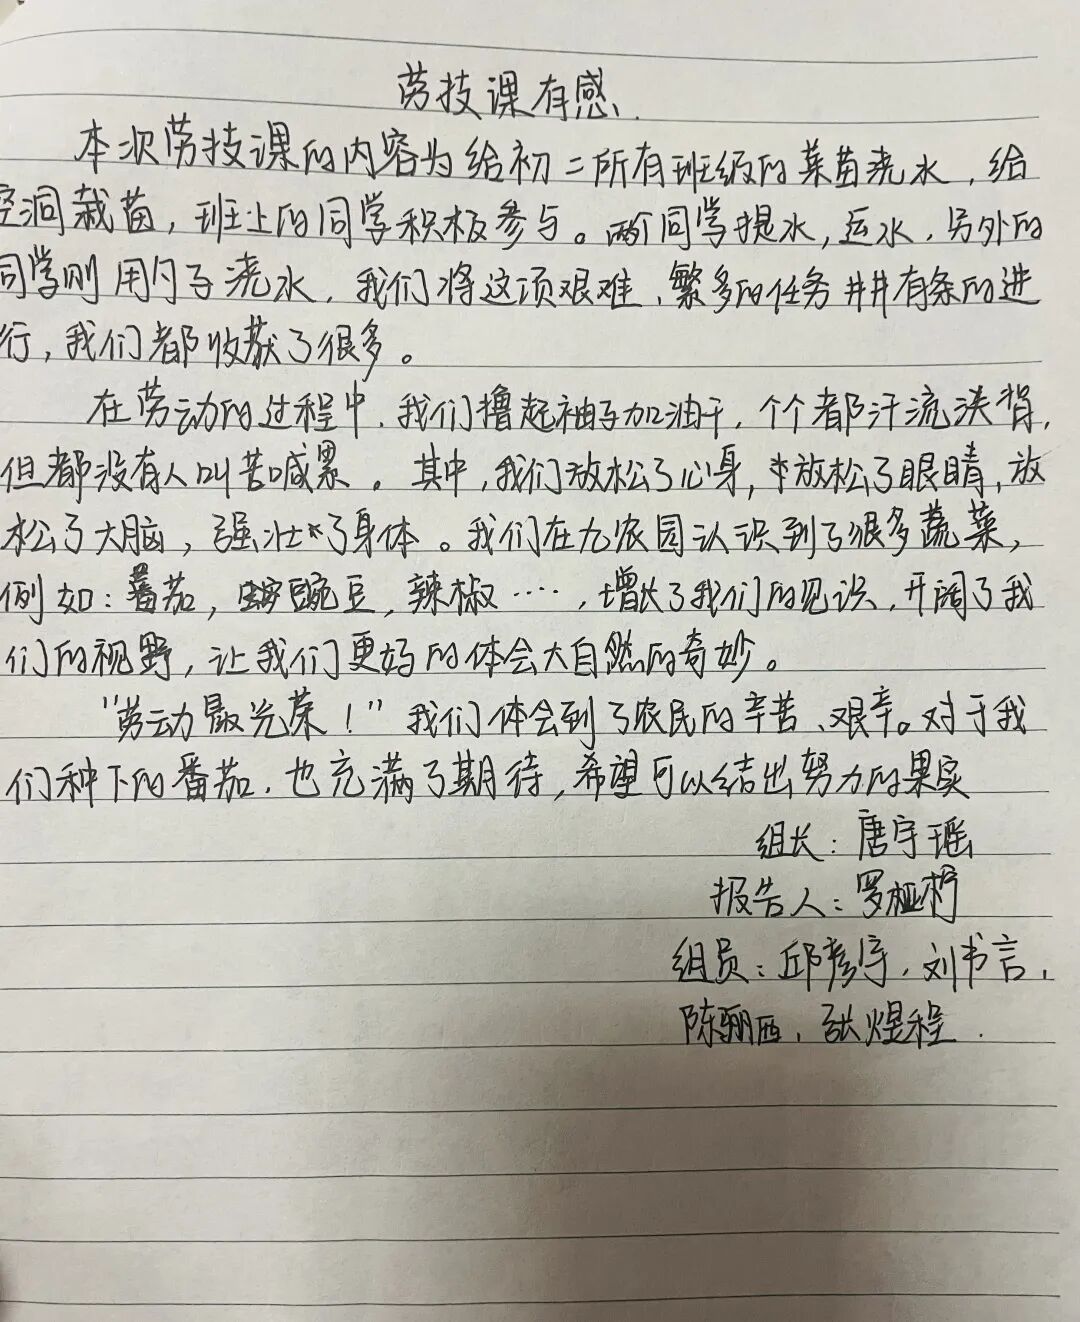 劳技课有感
本次劳技课的内容为给初二所有班级的菜苗浇水,给
空洞栽苗,班上的同学积极参与。两个同学提水,运水,另外的
同学则用勺子浇水,我们将这项艰难、繁多的任务井井有条的进
行,我们都收获了很多。
在劳动的过程中,我们撸起袖子加油干,个个都汗流浃背,
但都没有人叫苦喊累。其中,我们放松了心身,放松了眼睛,放
松了大脑,强壮了身体。我们在九农园认识到了很多蔬菜,
例如:番茄,豌豆,辣椒……,增长了我们的见识,开阔了我
们的视野,让我们更好的体会大自然的奇妙。
"劳动最光荣!"我们体会到了农民的辛苦、艰辛。对于我
们种下的番茄,也充满了期待,希望可以结出努力的果实
组长:唐宇瑶
报告人:罗桠
组员:邱彦,刘书言,
陈骊西,张煜程